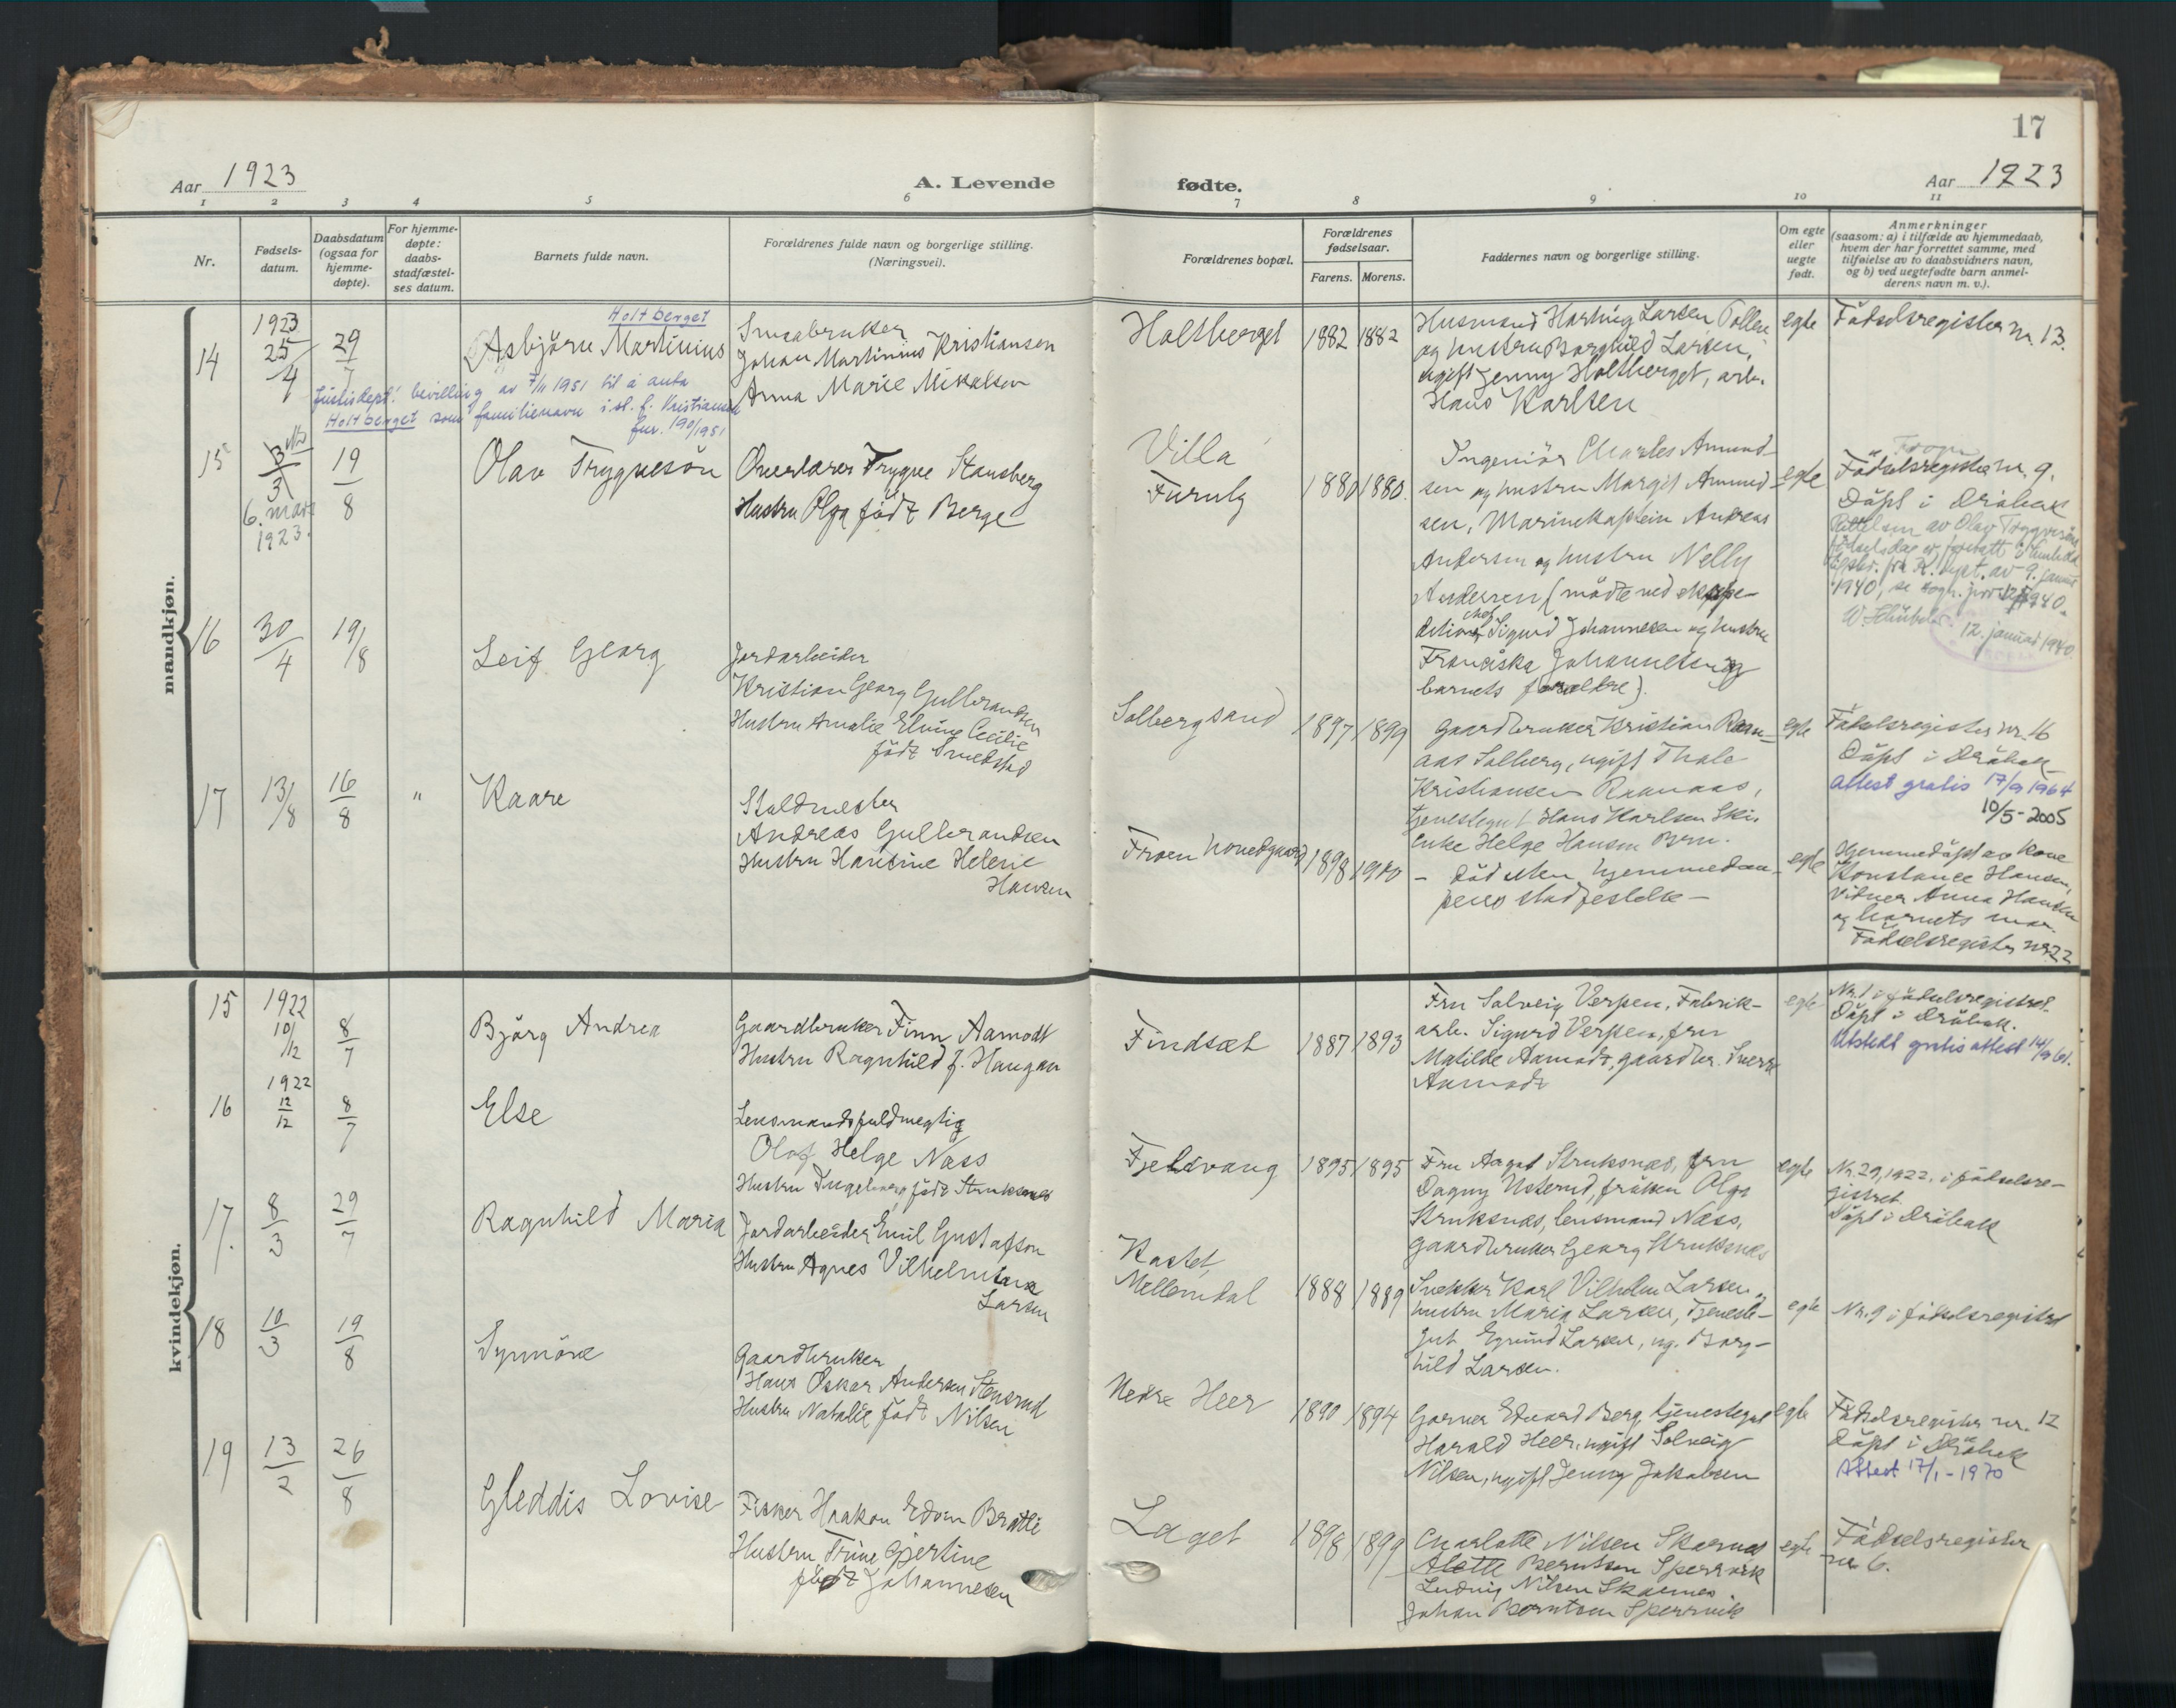 17
Aar 1923
A. Levende
fødte.
Aar 1923
1 2 3 4 5 6 7 8 9 10 11
Nr.
Fødsels-
datum.
Daabsdatum
(ogsaa for
hjemme-
døpte).
For hjemme-
døpte:
daabs-
stadfæstel-
ses datum.
Barnets fulde navn.
Forældrenes fulde navn og borgerlige stilling.
(Næringsvei).
Forældrenes bopæl.
Forældrenes
fødselsaar.
Farens. Morens.
Faddernes navn og borgerlige stilling.
Om egte
eller
uegte
født.
Anmerkninger
(saasom: a) i tilfælde av hjemmedaab,
hvem der har forrettet samme, med
tilføielse av to daabsvidners navn,
og b) ved uegtefødte barn anmel-
derens navn m. v.).
mandkjøn.
14
1923
25/4
29/7
Holtberget
Asbjörn Martinius
Justisdept. bevilling av 7/11 1951 til å anta
Holtberget som familienavn i st. f. Kristiansen
fur. 190/1951
Smaabruker
Johan Martinius Kristiansen
Anna Marie Mikalsen
Holtberget
1882 1882
Husmand Hartvig Larsen Tollen
og hustru Borghild Larsen,
ugift Jenny Holtberget, arb.
Hans Karlsen
egte
Födselsregister nr. 13.
15
3/3
6. mars
1923.
19/8
Olav Trygvesön
Overlærer Trygve Stensberg
Hustru Olga födt Berge
Villa
Furuly
1880 1880.
Ingeniör Charles Amund-
sen og hustru Margit Amund-
sen, Marinekaptein Andreas
Andersen og hustru Nelly
Andersen (mödte ved ekspe-
ditions chef Sigurd Johannesen og hustru
Franciska Johannesen og
barnets forældre).
egte
Födselsregister nr. 9.
Döpt i Dröbak
Rettelsen av Olav Trygvesöns
1940
12. januar 1940
16
30/4
19/8
Leif Georg
Jordarbeider
Kristian Georg Gulbrandsen
Hustru Amalie Elvine Cecilie
födt Smedstad
Solbergsand
1897 1899
Gaardbruker Kristian Ram-
aas Solberg, ugift Thale
Kristiansen Ramaas,
tjenestegut Hans Karlsen Ski,
Enke Helga Hansen Brn.
egte
Födselsregister nr. 16
Döpt i Dröbak
Attest gratis 17/9 1964
10/5-2005
17
13/8
16/8
"
Kaare
Staldmester
Andreas Gulbrandsen
Hustru Hansine Helene
Hansen
Froen hovedgaard
1898 1900
- död uten hjemmedaa-
pens stadfestelse -
egte
Hjemmedöpt av kone
Konstance Hansen,
Vidner Anna Hansen
og barnets mor.
Födselsregister nr 22
kvindekjøn.
15
1922
10/12
8/7
Björg Andrea
Gaardbruker Finn Aamodt
Hustru Ragnhild f. Haugan
Findsæt
1887 1893
Fru Solveig Verpen, Fabrik-
arb. Sigurd Verpen, fru
Matilde Aamodt, gaardbr. Sverre
Aamodt
egte
Nr. 1 i födselsregistret.
Döpt i Dröbak.
Utstedt gratis attest 14/9 61.
16
1922
12/12
8/7
Else
Lensmandsfuldmegtig
Olaf Helge Næss
Hustru Ingeborg födt Struksnæs
Fjeldvang
1895 1895
Fru Aagot Struksnæs, fru
Dagny Usterud, fröken Olga
Struksnæs, lensmand Næss,
gaardbruker Georg Struksnæs
egte
Nr. 29, 1922, i födselsre-
gistret
Döpt i Dröbak
17.
8/3
29/7
Ragnhild Maria
Jordarbeider Emil Gustafson
Hustru Agnes Vilhelmine
Larsen
Kastet,
Mellemdal
1888 1889
Snekker Karl Vilhelm Larsen og
hustru Maria Larsen, Tjeneste-
gut Egmund Larsen, ug. Borg-
hild Larsen.
egte
Nr. 9 i födselsregistret
18
10/3
19/8
Synnöve
Gaardbruker
Hans Oskar Andersen Stensrud
Hustru Natalie födt Nilsen
Nedre Heer
1890 1894
Garver Edvard Berg, tjenestegut
Harald Heer, ugift Solveig
Nilsen, ugift Jenny Jakobsen
egte
Födselsregister nr. 12
Döpt i Dröbak
Attest 17/1-1970
19
13/2
26/8
Gleddis Lovise
Fisker Haakon Edvin Bråtte
Hustru Trine Gjertine
födt Johannesen
Laget
1898 1899
Charlotte Nilsen Skarnes
Alette Berntsen Sperrvik
Ludvig Nilsen Skarnes
Johan Berntsen Sperrvik
egte
Födselsregister
nr. 6.